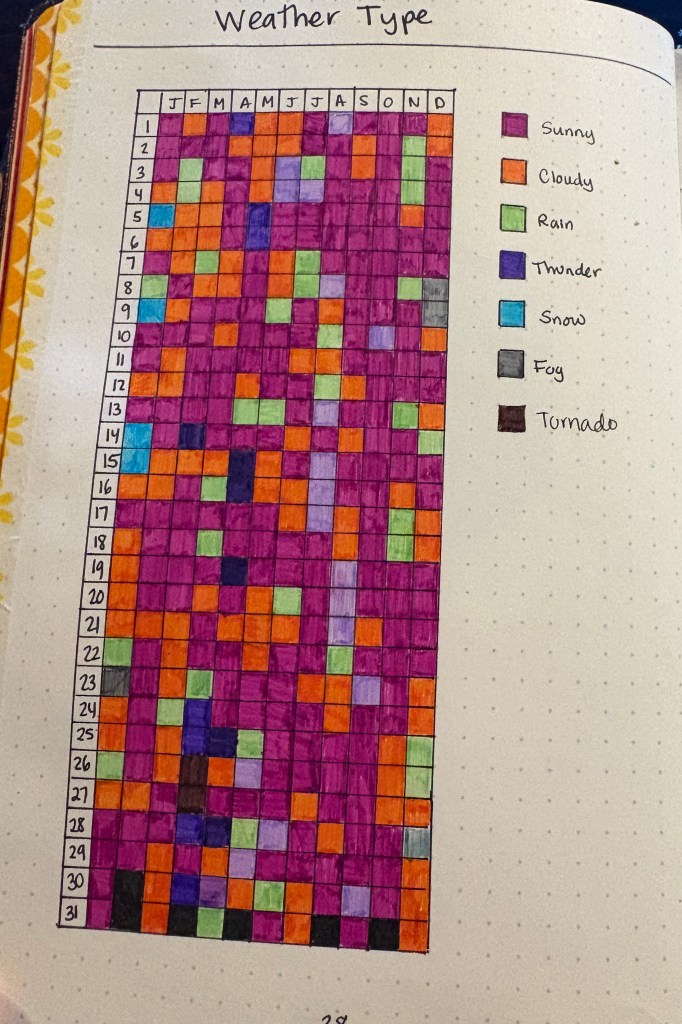 Weather Type
J F M A M J J A S O N D
1
2
3
4
5
6
7
8
9
10
11
12
13
14
15
16
17
18
19
20
21
22
23
24
25
26
27
28
29
30
31
Sunny
Cloudy
Rain
Thunder
Snow
Fog
Tornado